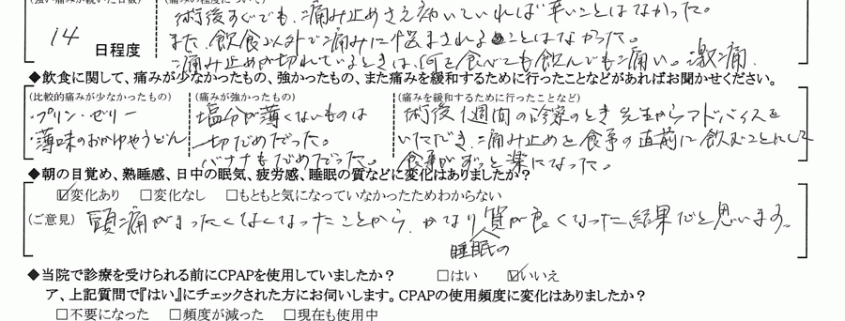 (強い痛みが続いた日数) (痛みの程度について)
術後すぐでも、痛み止めさえ効いていれば辛いことはなかった。
14 日程度
また、飲食以外で痛みに悩まされることはなかった。
痛み止めが切れているときは、何を食べても飲んでも痛い。激痛.
◆飲食に関して、痛みが少なかったもの、強かったもの、また痛みを緩和するために行ったことなどがあればお聞かせください。
(比較的痛みが少なかったもの) (痛みが強かったもの) (痛みを緩和するために行ったことなど)
・プリン・ゼリー 塩分が薄くないものは 術後1週間の診察のとき先生からアドバイスを
・薄味のおかゆやうどん 一切だめだった。 いただき、痛み止めを食事の直前に飲むことにして
バナナもだめだった。 食事がずっと楽になった。
◆朝の目覚め、熟睡感、日中の眠気、疲労感、睡眠の質などに変化はありましたか?
☑変化あり □変化なし □もともと気になっていなかったためわからない
(ご意見) 頭痛がまったくなくなったことから、かなり質が良くなった結果だと思います。
睡眠の
◆当院で診療を受けられる前にCPAPを使用していましたか? □はい ☑いいえ
ア、上記質問で『はい』にチェックされた方にお伺いします。CPAPの使用頻度に変化はありましたか?
□不要になった □頻度が減った □現在も使用中